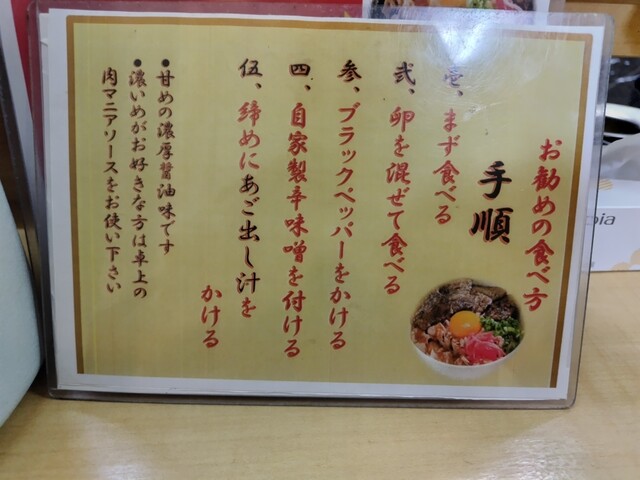 お勧めの食べ方
手順
壱、まず食べる
弐、卵を混ぜて食べる
参、ブラックペッパーをかける
四、自家製辛味噌を付ける
伍、締めにあご出し汁を
かける
●甘めの濃厚醤油味です
●濃いめがお好きな方は卓上の
肉マニアソースをお使い下さい